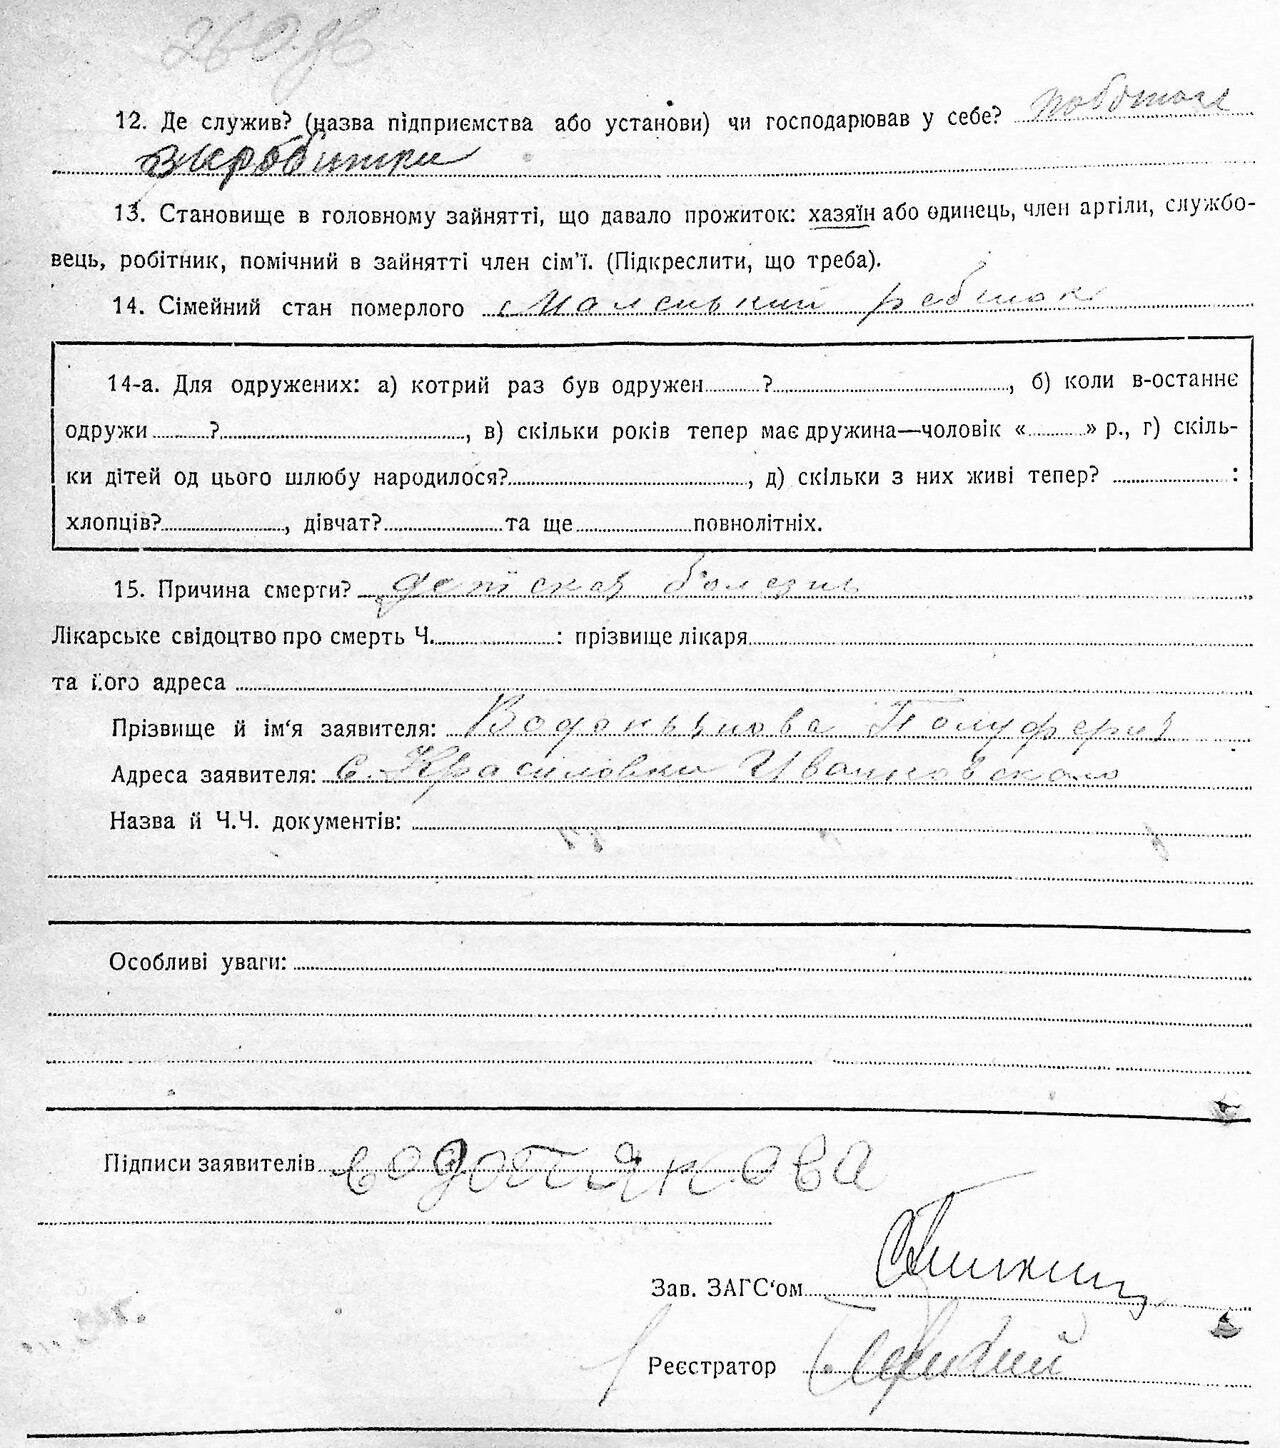 12. Де служив? (назва підприємства або установи) чи господарював у себе?
13. Становище в головному зайнятті, що давало прожиток: хазяїн або одинець, член аргіли, службо-
вець, робітник, помічний в зайнятті член сім’ї. (Підкреслити, що треба).
14. Сімейний стан померлого маленький ребінок
14-а. Для одружених: а) котрий раз був одружен ? , б) коли в-останнє
одружи ? , в) скільки років тепер має дружина—чоловік « » р., г) скіль-
ки дітей од цього шлюбу народилося? , д) скільки з них живі тепер? :
хлопців? , дівчат? та ще повнолітніх.
15. Причина смерти? детская болезнь
Лікарське свідоцтво про смерть Ч. : прізвище лікаря
та його адреса
Прізвище й ім‘я заявителя:
Адреса заявителя: с. Красиловки Ивановского
Назва й Ч.Ч. документів:
Особливі уваги:
Підписи заявителів водопякова
Зав. ЗАГС‘ом
Реєстратор